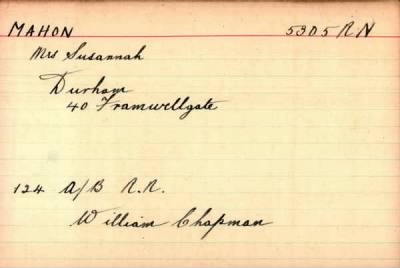 MAHON 5305 RN
Mrs Susannah
Durham
40 Framwellgate
124 A/B R.R.
William Chapman